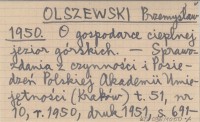 OLSZEWSKI Przemysław
1950. O gospodarce cieplnej
jezior górskich. — Sprawo-
zdania z czynności i Posie-
dzeń Polskiej Akademii Umie-
jętności (Kraków) t. 51, nr
10, r. 1950, druk 1951, s. 691-